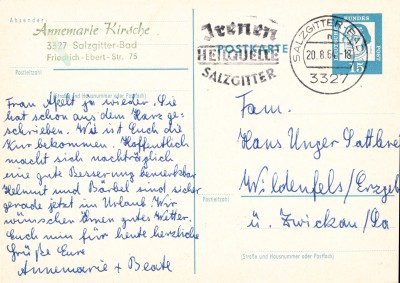 Absender:
Annemarie Kirsche
3327 Salzgitter-Bad
Friedrich-Ebert-Str. 75
Postleitzahl
(Straße und Hausnummer oder Postfach)
Irenen
HEILQUELLE
SALZGITTER
POSTKARTE
SALZGITTER-BAD
20.8.64-18
3327
BUNDES
POST
15
Frau geht ja wieder. Sie
hat schon aus dem Harz ge-
schrieben. Wie ist Euch die
Kur bekommen. Hoffentlich
macht sich nachträglich
eine gute Besserung bemerkbar
Helmut und Bärbel sind sicher
gerade jetzt im Urlaub. Wir
wünschen ihnen gutes Wetter.
Euch nun für heute herzliche
Grüße Eure
Annemarie + Beate
Fam.
Hans Unger
Wildenfels/Erzgeb
ü. Zwickau/Sa
Postleitzahl
(Straße und Hausnummer oder Postfach)